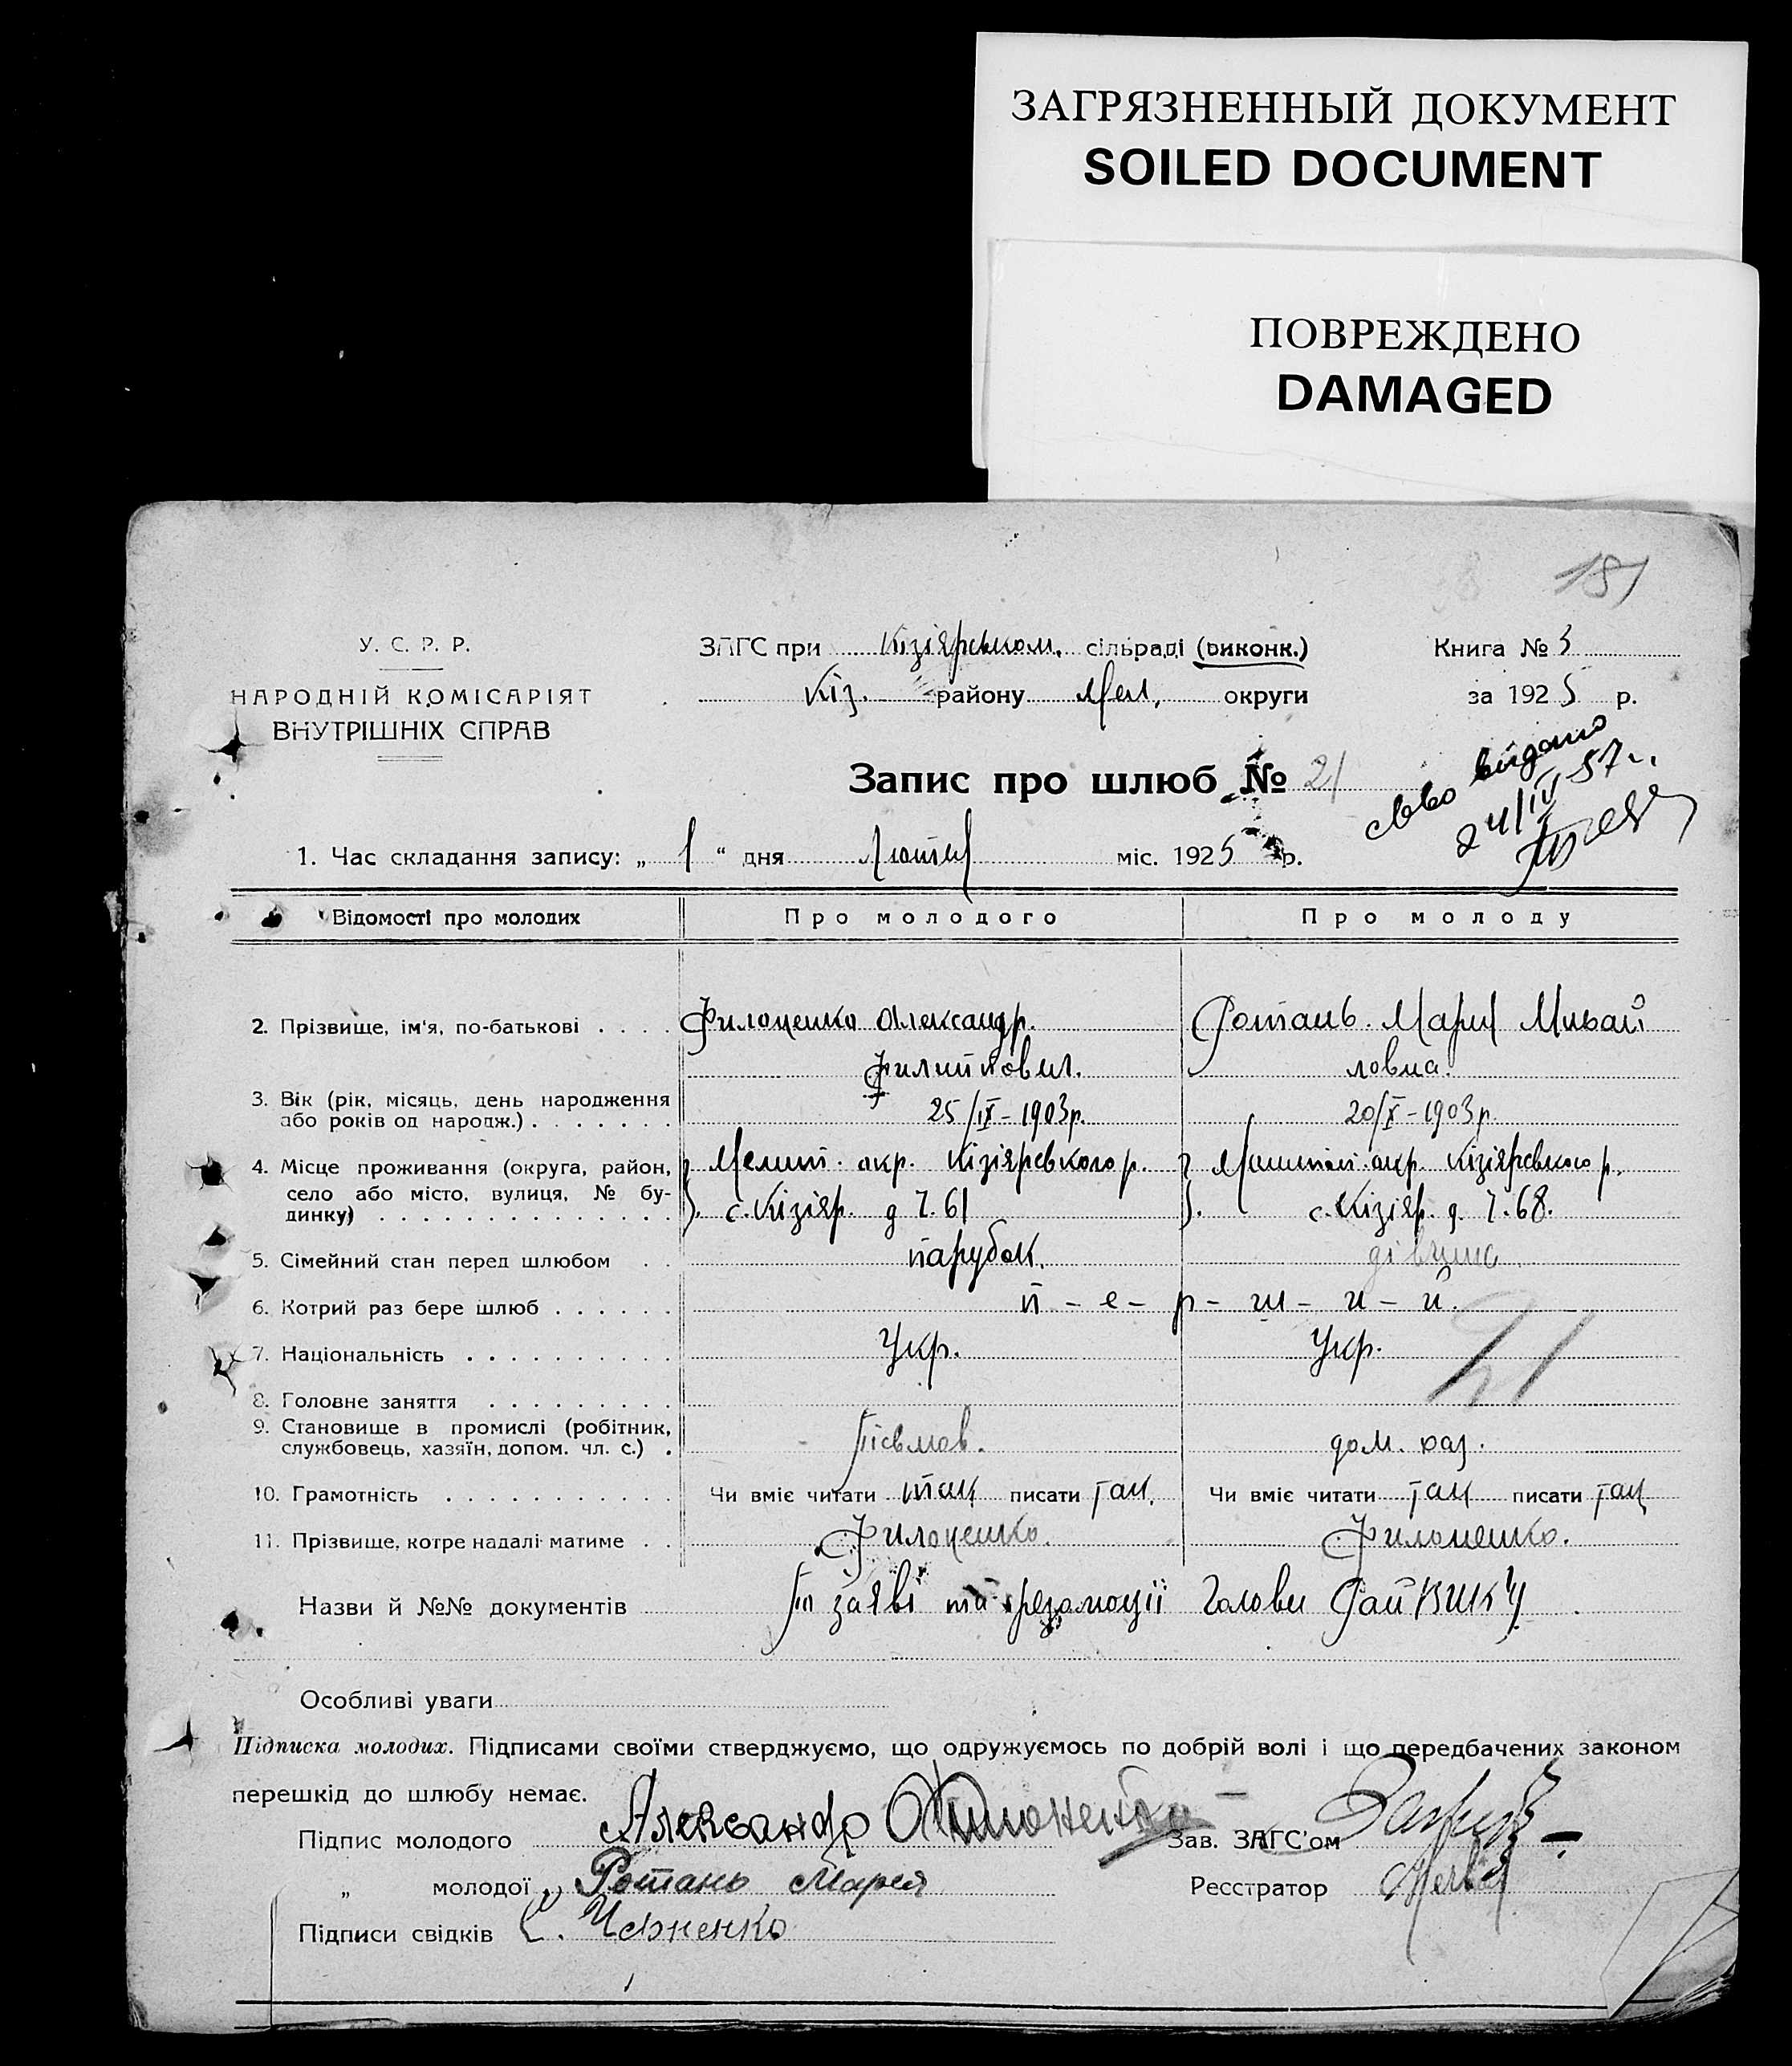 ЗАГРЯЗНЕННЫЙ ДОКУМЕНТ
SOILED DOCUMENT
ПОВРЕЖДЕНО
DAMAGED
181
У. С. Р. Р.
НАРОДНІЙ КОМІСАРІЯТ
ВНУТРІШНІХ СПРАВ
ЗАГС при Кізіярськом. сільраді (виконк.)
Кіз. району Мел. округи
Книга № 3
за 1925 р.
Запис про шлюб № 21
видано
24/IV 57 г.
1. Час складання запису: „ 1 “ дня Лютня міс. 1925 р.
Відомості про молодих Про молодого Про молоду
2. Прізвище, ім'я, по-батькові . . . . Филоненко Александр. Ротань. Мария Михай
Филипович. ловна.
3. Вік (рік, місяць, день народження
або років од народж.) . . . . . . . 25/IX-1903р. 20/X-1903р.
4. Місце проживання (округа, район, Мелит. окр. Кізіярського р. Мелитоп. окр. Кізіярського р.
село або місто, вулиця, № бу- с. Кізіяр. д 7.61 с. Кізіяр. д. 7.68.
динку) . . . . . . . . . . . . . .
5. Сімейний стан перед шлюбом . . парубок. дівчина
6. Котрий раз бере шлюб . . . . . . п - е - р - ш - и - й.
7. Національність . . . . . . . . . . Укр. Укр.
21
8. Головне заняття . . . . . . . . .
9. Становище в промислі (робітник,
службовець, хазяїн, допом. чл. с.) . дом. хаз.
10. Грамотність . . . . . . . . . . . Чи вміє читати так писати так. Чи вміє читати так писати так
11. Прізвище, котре надалі матиме . . Филоненко. Филоненко.
Назви й №№ документів По заяві та резолюції Голови РайВИКу
Особливі уваги
Підписка молодих. Підписами своїми стверджуємо, що одружуємось по добрій волі і що передбачених законом
перешкід до шлюбу немає.
Підпис молодого Александр Филоненко Зав. ЗАГС'ом
„ молодої Ротань Мария Реєстратор
Підписи свідків